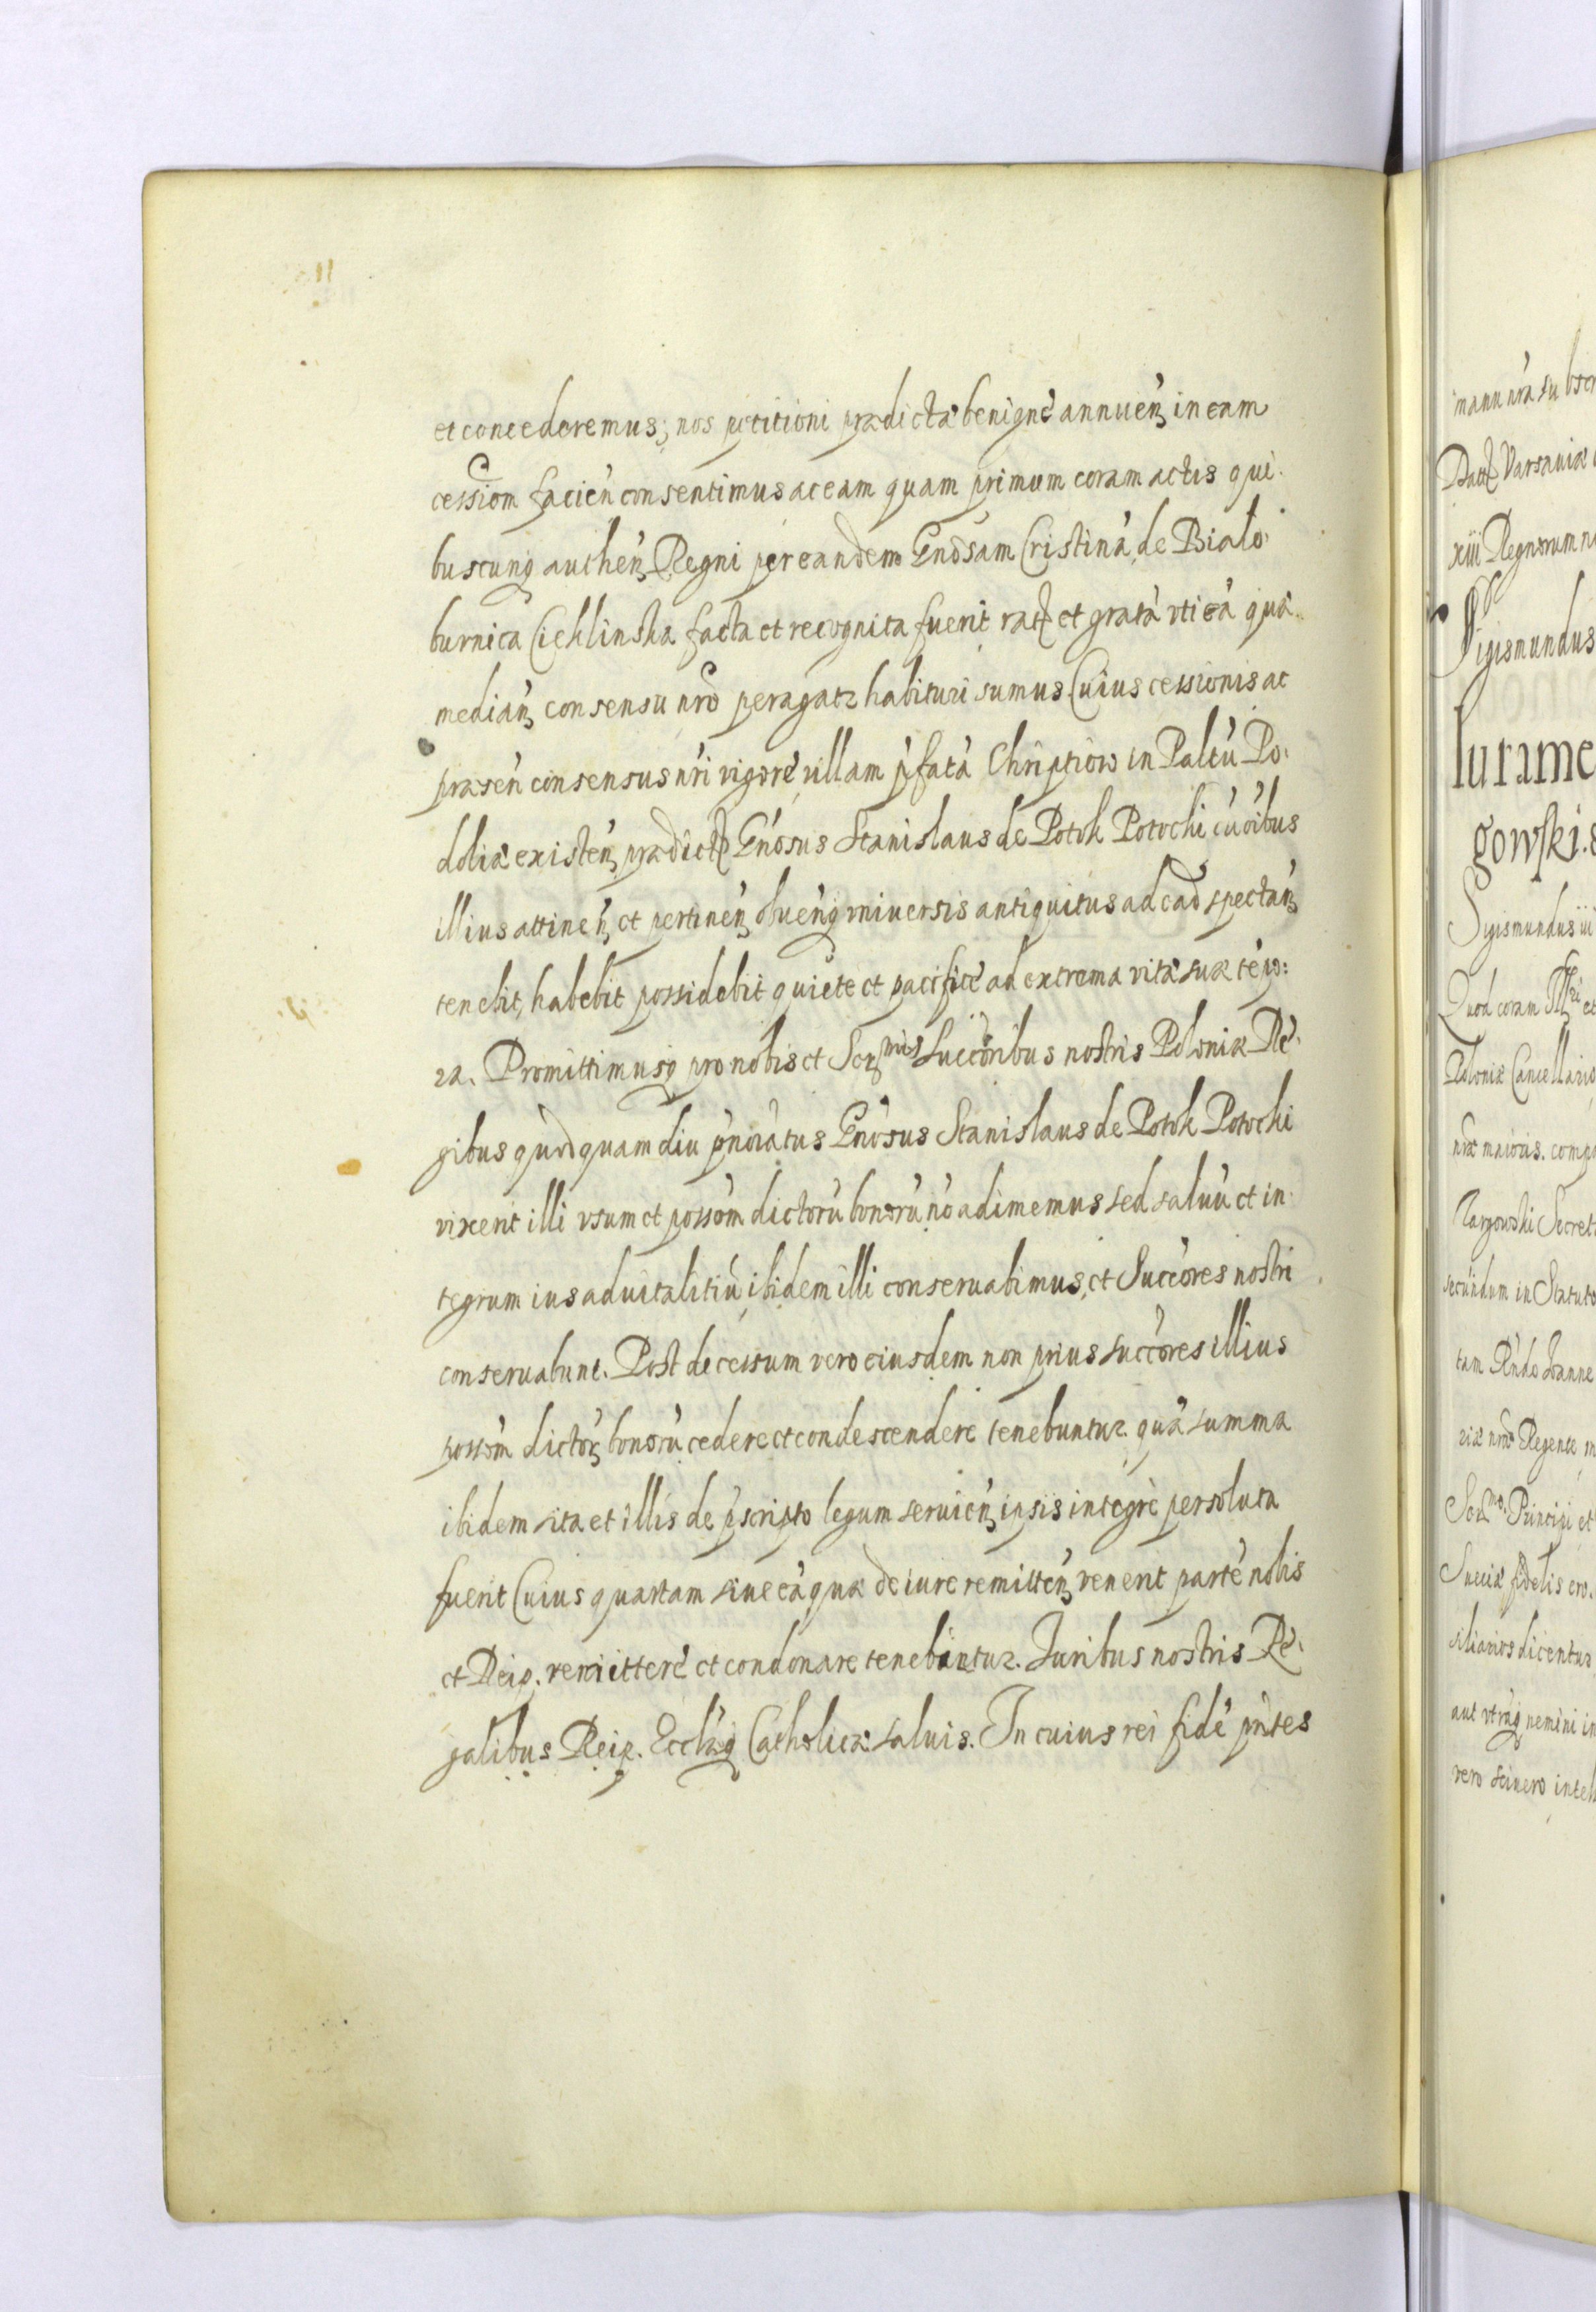 et concederemus; nos petitioni prædictæ benignè annueñ in eam
cessiom facień consentimus ac eam quam primum coram actis qui-
buscunq autheñ Regni per eandem Gnosam Cristinā de Bialo-
burnica Cieklinska facta et recognita fuerit ratā et gratā uti eā quæ
mediañ consensu nro peragatz habituri sumus Cuius cessionis ac
præsen consensus nri vigore villam pfatā Chriptiow in Paltu Po-
doliæ existeñ prædict Gnosus Stanislaus de Potok Potocki cū oibus
illius attineñ et pertineñ obuenq universis antiquitus ad ead spectañ
tenebit, habebit possidebit quiete et pacificè ad extrema vitæ suæ tēpo:
ra. Promittimusq pro nobis et Ser mis Succoribus nostris Poloniæ Re-
gibus quod quam diu pnoiatus Gnosus Stanislaus de Potok Potocki
vixerit illi usum et possom dictorū bonorū nō adimemus sed saluū et in-
tegrum ius aduitalitiū ibidem illi conseruabimus, et Succores nostri
conseruabunt. Post decessum vero eiusdem non prius succores illius
possom dictor bonorū cedere et condescendere tenebuntur quā summa
ibidem sita et illis de pscripto legum seruieñ ipsis integrè persoluta
fuerit Cuius quartam siue eā quæ de iure remitteñ venerit partē nobis
et Reip. remittere et condonare tenebuntur. Iuribus nostris Re-
galibus Reip. Ecclæq Catholicæ saluis. In cuius rei fidē pntes
manu nra subscr
Datt Varsauiæ
xiii Regnorum n
Sigismundus
Iurame
gowski. s
Sigismundus iii
Quod coram Illri et
Poloniæ Cancellario
nræ maioris. comp
Targowski Secret
secundum in Statuto
tam Rndo Ioanne
riæ nræ Regente m
Ser no Principi et
Sueciæ fidelis ero.
siliarios dicentur
aut utraq nemini in
vero scivero intel